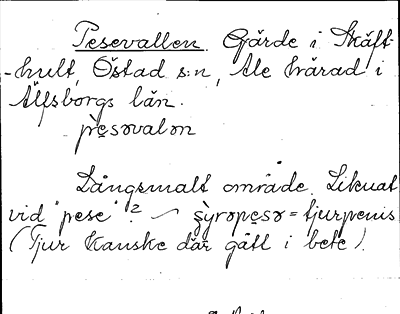 Pesevallen. Gärde i Skäft-
-hult, Östad s:n, Ale härad i
Älfsborgs län.
pe̠səvalən
Långsmalt område. Liknat
vid "pese"? ~ = tjurpenis
(Tjur kanske där gått i bete).